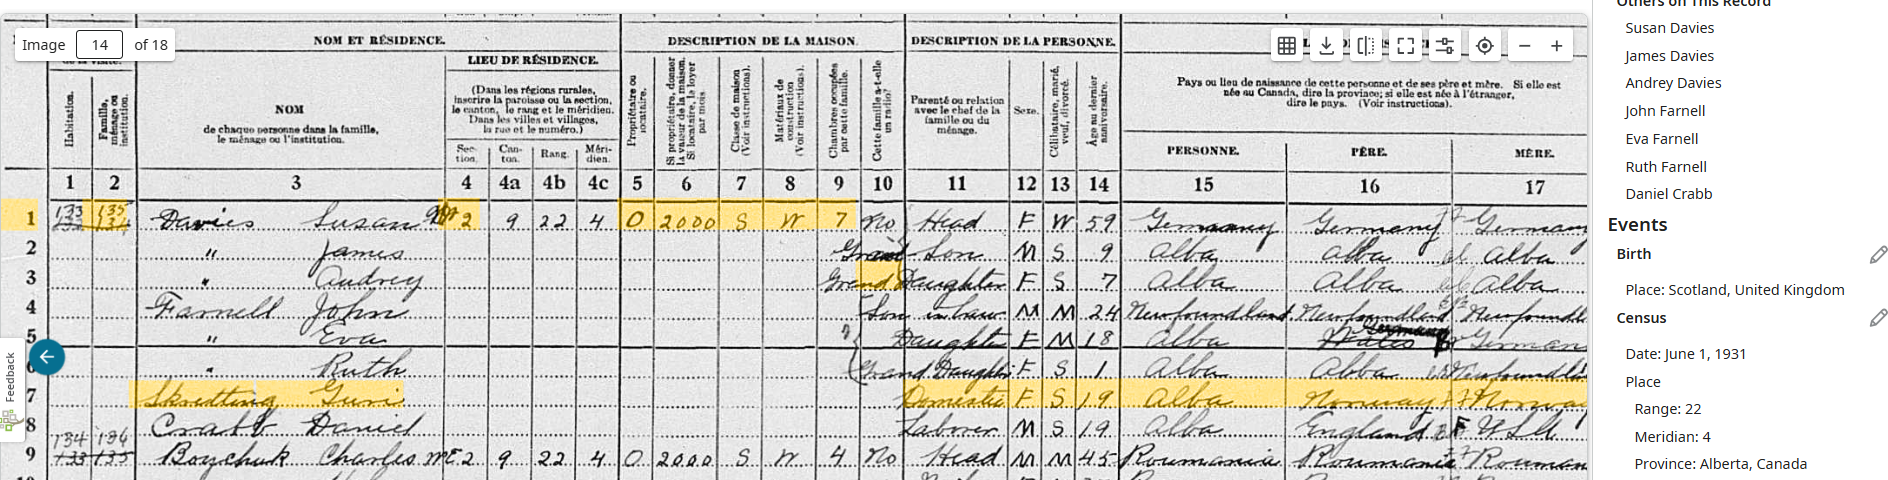 Image 14 of 18
de la visite.
NOM ET RÉSIDENCE.
DESCRIPTION DE LA MAISON.
DESCRIPTION DE LA PERSONNE.
Habitation.
Famille, ménage ou institution.
NOM
de chaque personne dans la famille,
le ménage ou l'institution.
LIEU DE RÉSIDENCE.
(Dans les régions rurales,
inscrire la paroisse ou la section,
le canton, le rang et le méridien.
Dans les villes et villages,
la rue et le numéro.)
Section. Canton. Rang. Méridien.
Propriétaire ou locataire.
Si propriétaire, donner la valeur de la maison. Si locataire, le loyer par mois.
Classe de maison (Voir instructions).
Matériaux de construction (Voir instructions).
Chambres occupées par cette famille.
Cette famille a-t-elle un radio?
Parenté ou relation
avec le chef de la
famille ou du
ménage.
Sexe.
Célibataire, marié, veuf, divorcé.
Âge au dernier anniversaire.
Pays ou lieu de naissance de cette personne et de ses père et mère. Si elle est
née au Canada, dire la province; si elle est née à l'étranger,
dire le pays. (Voir instructions).
PERSONNE. PÈRE. MÈRE.
1 2 3 4 4a 4b 4c 5 6 7 8 9 10 11 12 13 14 15 16 17
1 133 135 Davies Susan 2 9 22 4 O 2000 S W 7 No Head F W 59 Germany Germany German
2 " James Grand Son M S 9 Alba Alba Alba
3 " Audrey Grand Daughter F S 7 Alba Alba Alba
4 Farnell John Son in law M M 24 Newfoundland Newfoundland Newfoundl
5 " Eva Daughter F M 18 Alba German
6 " Ruth Grand Daughter F S 1 Alba Alba Newfoundl
7 Skredting Guri Domestic F S 19 Alba Norway Norwa
8 Crabb Daniel Laborer M S 19 Alba England USA
9 134 136 Boychuk Charles 2 9 22 4 O 2000 S W 4 No Head M M 45 Roumania Roumania Rouman
Feedback
Others on This Record
Susan Davies
James Davies
Andrey Davies
John Farnell
Eva Farnell
Ruth Farnell
Daniel Crabb
Events
Birth
Place: Scotland, United Kingdom
Census
Date: June 1, 1931
Place
Range: 22
Meridian: 4
Province: Alberta, Canada